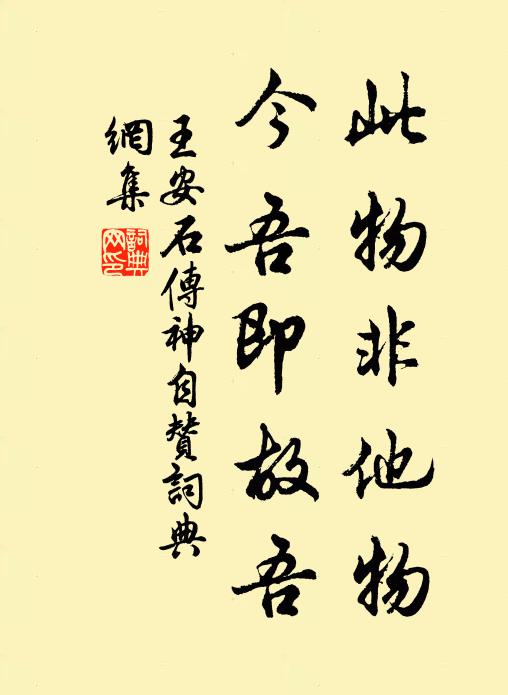 此物非他物
今吾即故吾
王安石傳神自贊詞典
網集
詞典網印